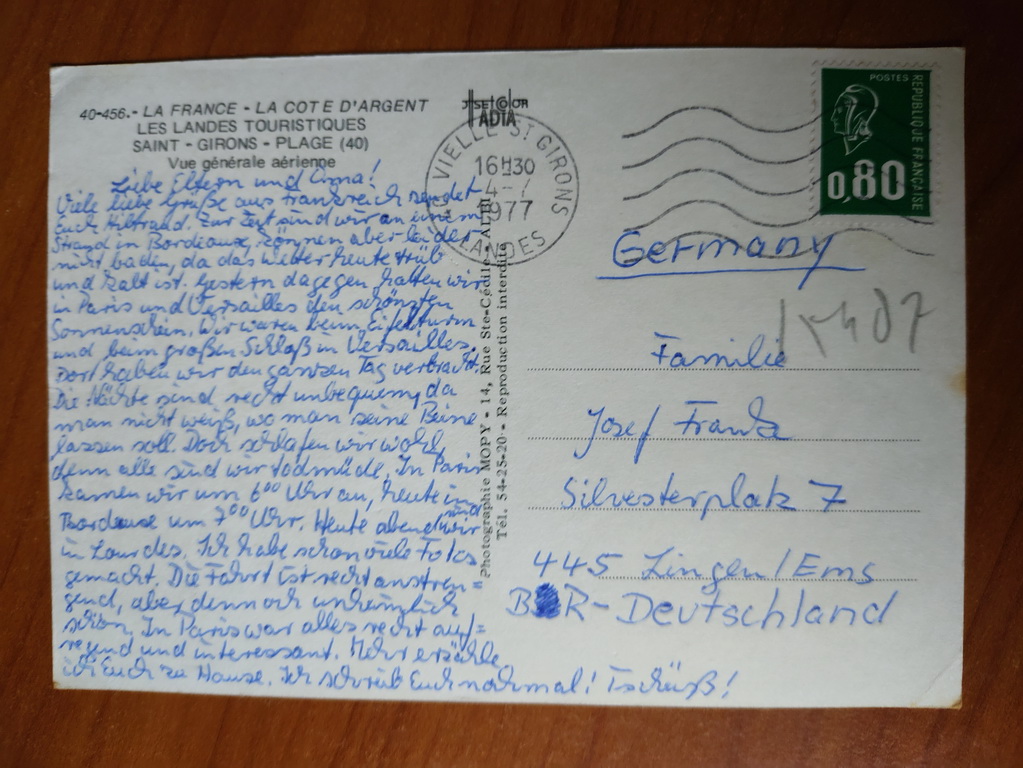 40-456.- LA FRANCE - LA COTE D'ARGENT
LES LANDES TOURISTIQUES
SAINT - GIRONS - PLAGE (40)
Vue générale aérienne
Liebe Eltern und Oma!
Viele liebe Grüße aus Frankreich sendet
Euch Hiltrud. Zur Zeit sind wir an einem
Strand in Bordeaux, können aber leider
nicht baden, da das Wetter heute trüb
und kalt ist. Gestern dagegen hatten wir
in Paris und Versailles den schönsten
Sonnenschein. Wir waren beim Eifelturm
und beim großen Schloß in Versailles.
Dort haben wir den ganzen Tag verbracht.
Die Nächte sind recht unbequem, da
man nicht weiß, wo man seine Beine
lassen soll. Doch schlafen wir wohl,
denn alle sind wir todmüde. In Paris
kamen wir um 6⁰⁰ Uhr an, heute in
Bordeaux um 7⁰⁰ Uhr. Heute abend sind wir
in Lourdes. Ich habe schon viele Fotos
gemacht. Die Fahrt ist recht anstren=
gend, aber dennoch unheimlich
schön. In Paris war alles recht auf=
regend und interessant. Mehr erzähle
ich Euch zu Hause. Ich schreib Euch nochmal! Tschüß!
JSE COLOR
ADIA
VIELLE ST GIRONS
16H30
4-7
1977
LANDES
Photographie MOPY - 14, Rue Ste-Cécile -
Tél. 54-25-20 - Reproduction interdite
POSTES
REPUBLIQUE FRANÇAISE
0,80
Germany
Familie
Josef
Silvesterplatz 7
445 Lingen/Ems
BR-Deutschland